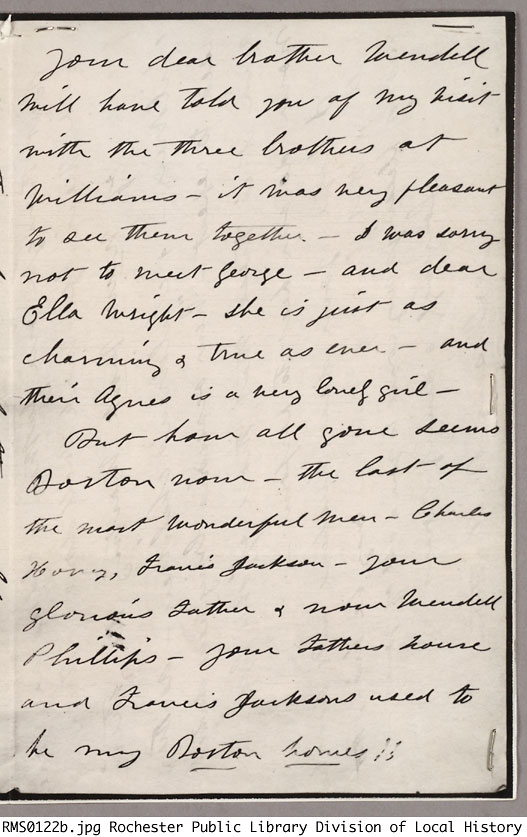 Your dear brother Wendell
will have told you of my visit
with the three brothers at
Williams – it was very pleasant
to see them together. – I was sorry
not to meet George – and dear
Ella Wright – she is just as
charming & true as ever – and
their Agnes is a very lovely girl –
But how all gone seems
Boston now – the last of
the most wonderful men – Charles
Hovey, Francis Jackson – your
glorious Father & now Wendell
Phillips – your Fathers house
and Francis Jacksons used to
be my Boston homes!!
RMS0122b.jpg Rochester Public Library Division of Local History